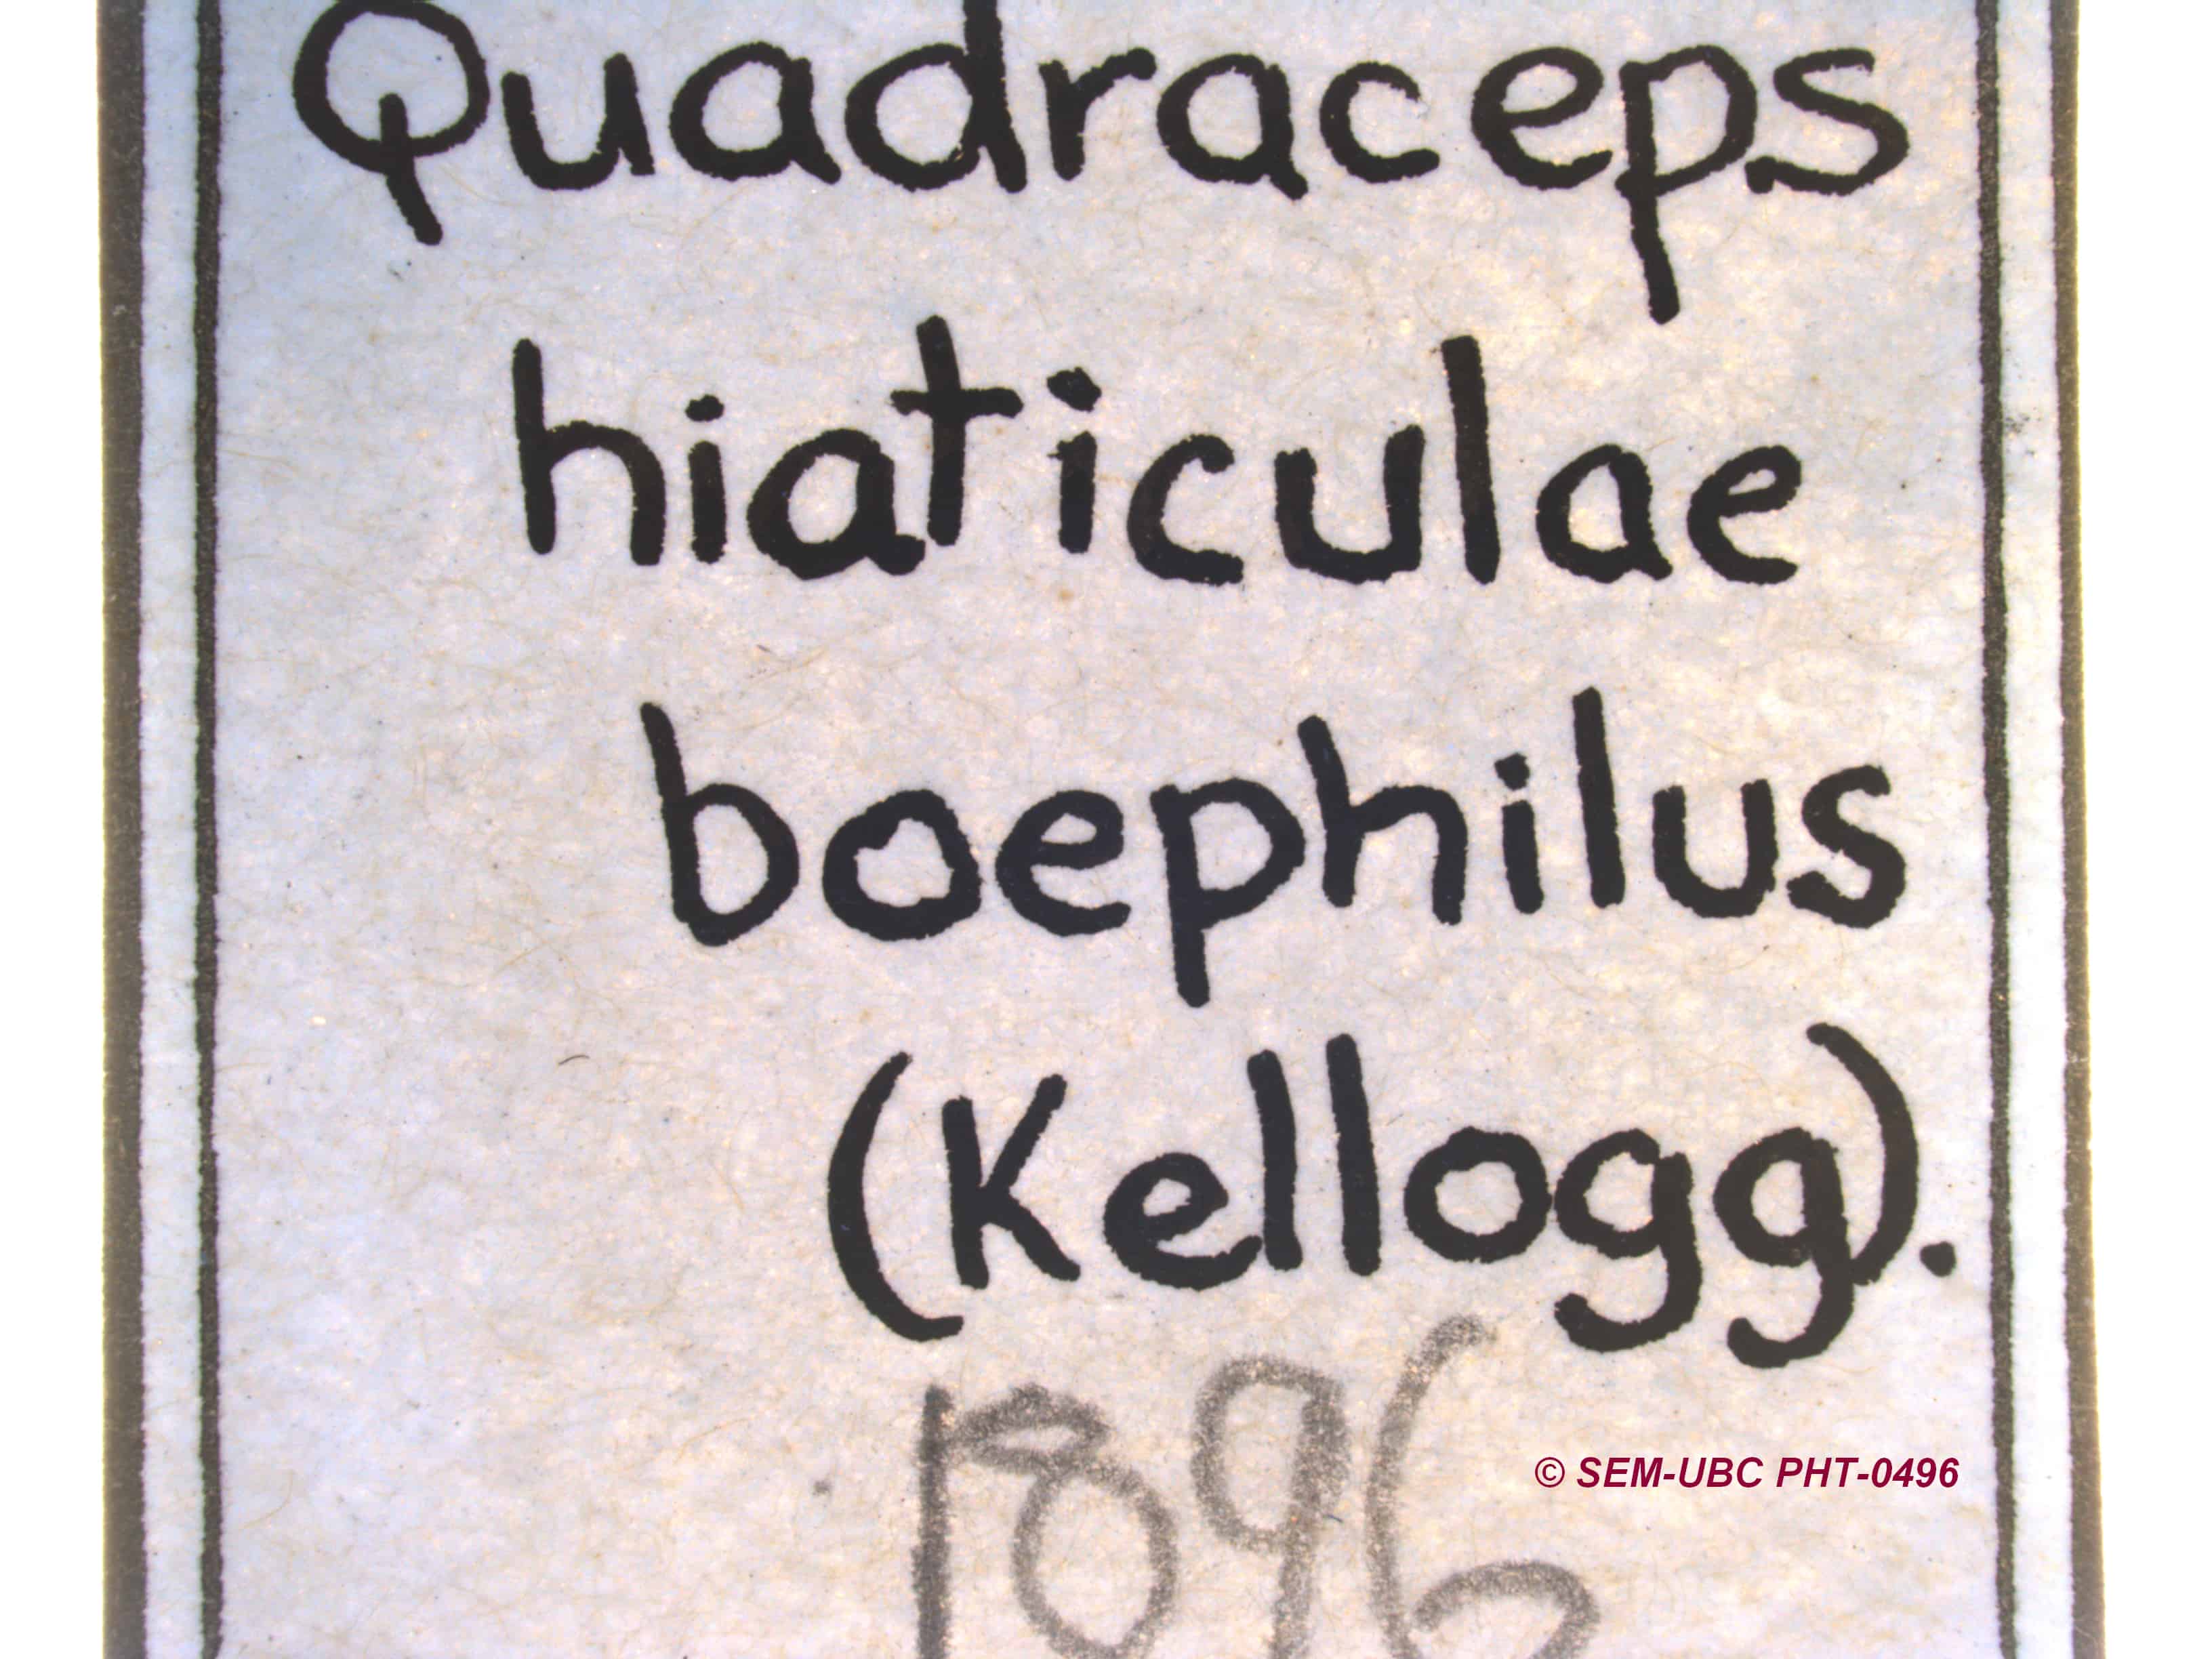 Quadraceps
hiaticulae
boephilus
(Kellogg).
1896
© SEM-UBC PHT-0496